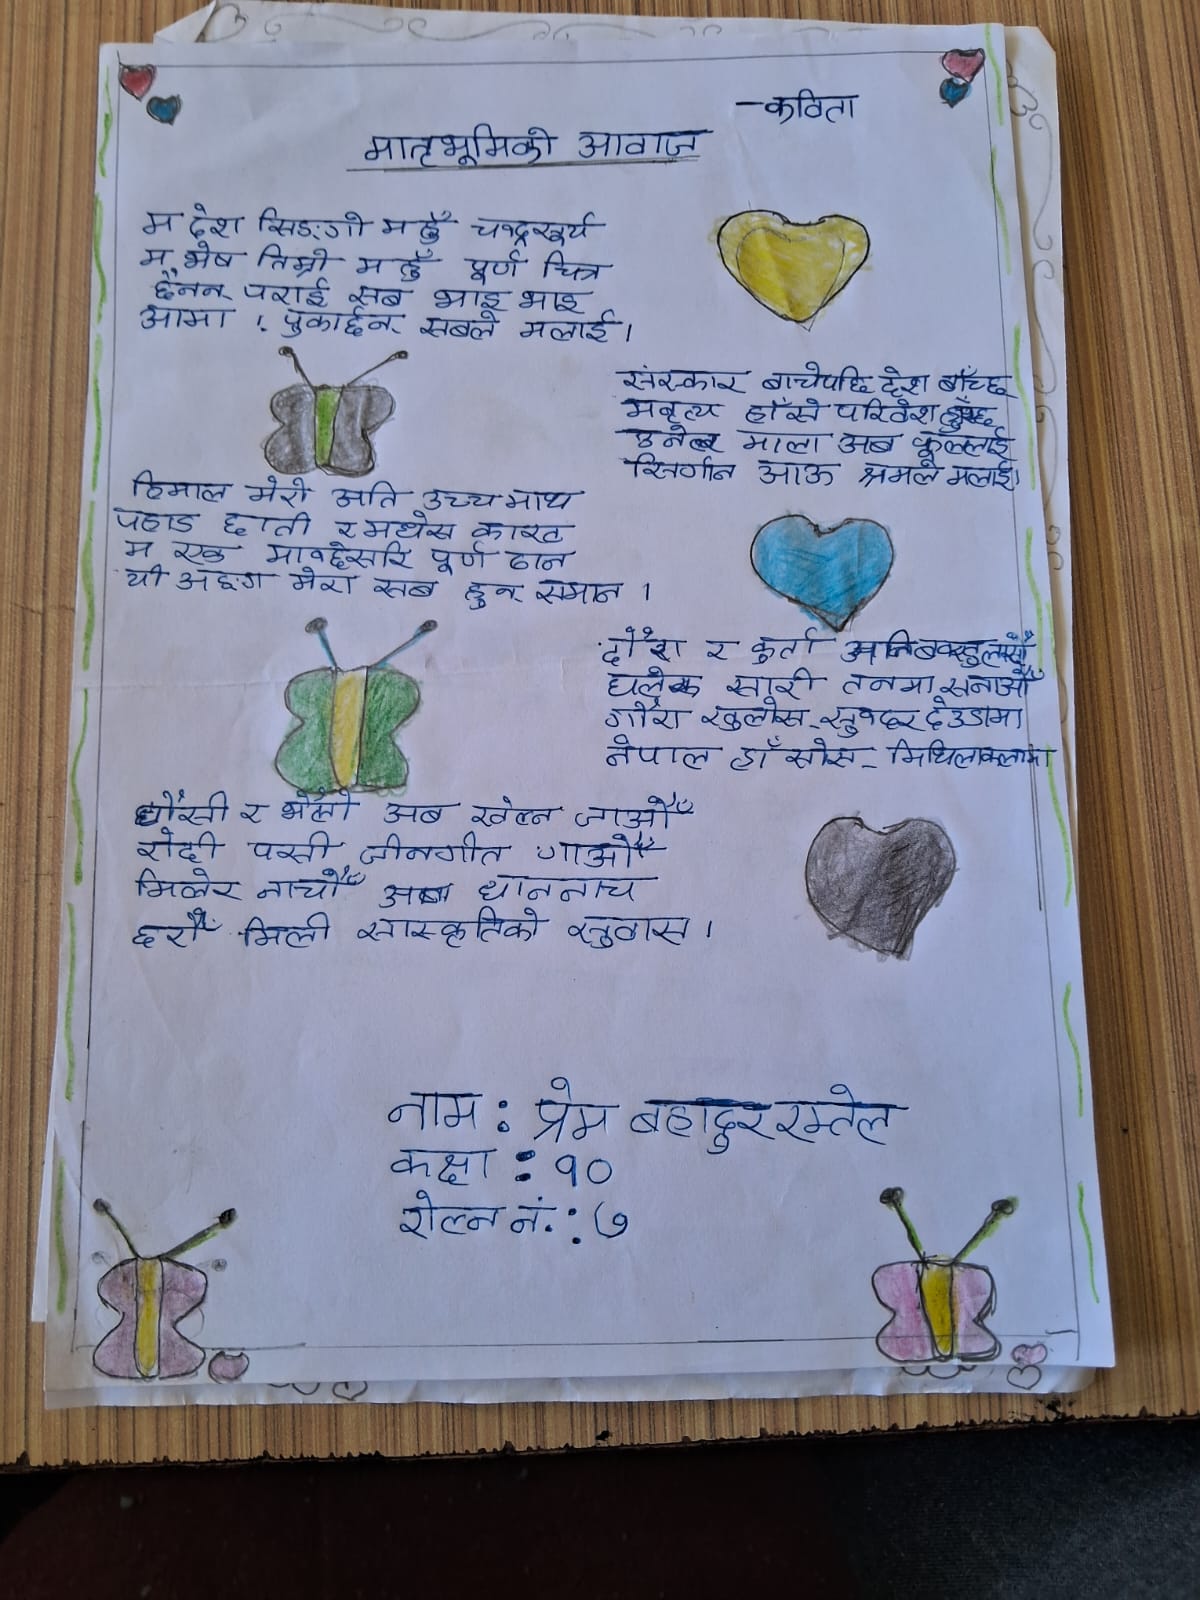 -कविता
मातृभूमिको आवाज
म देश सिङ्गो म हुँ चन्द्रसूर्य
म भेष तिम्रो म हुँ पूर्ण चित्र
छैनन् पराई सब भाइ भाइ
आमा ! पुकार्छन् सबले मलाई।
संस्कार बाचेपछि देश बाँच्छ
मनृत्य हाँसे परिवेश हुँच्छ
उनेर माला अब फूललाई
सिर्गान आऊ श्रमले मलाई।
हिमाल मेरो अति उच्च माथ
पहाड छाती र मधेस काख
म एक मान्छेसरि पूर्ण ठान
यी अङ्ग मेरा सब हुन् समान ।
दौरा र कुर्ता
घलेक सारी तनमा सजाऔँ
गौरा खुलोस् सुन्दर देउडामा
नेपाल हाँसोस् मिथिलाकलामा
घाँसी र भैलो अब खेल्न जाऔँ
रोदी पसी जीनगीत गाऔँ
मिलेर नाचौँ अब धाननाच
छरौँ मिली सास्कृतिको सुवास ।
नाम : प्रेम बहादुर रम्तेल
कक्षा : १०
रोल्न नं. : ७